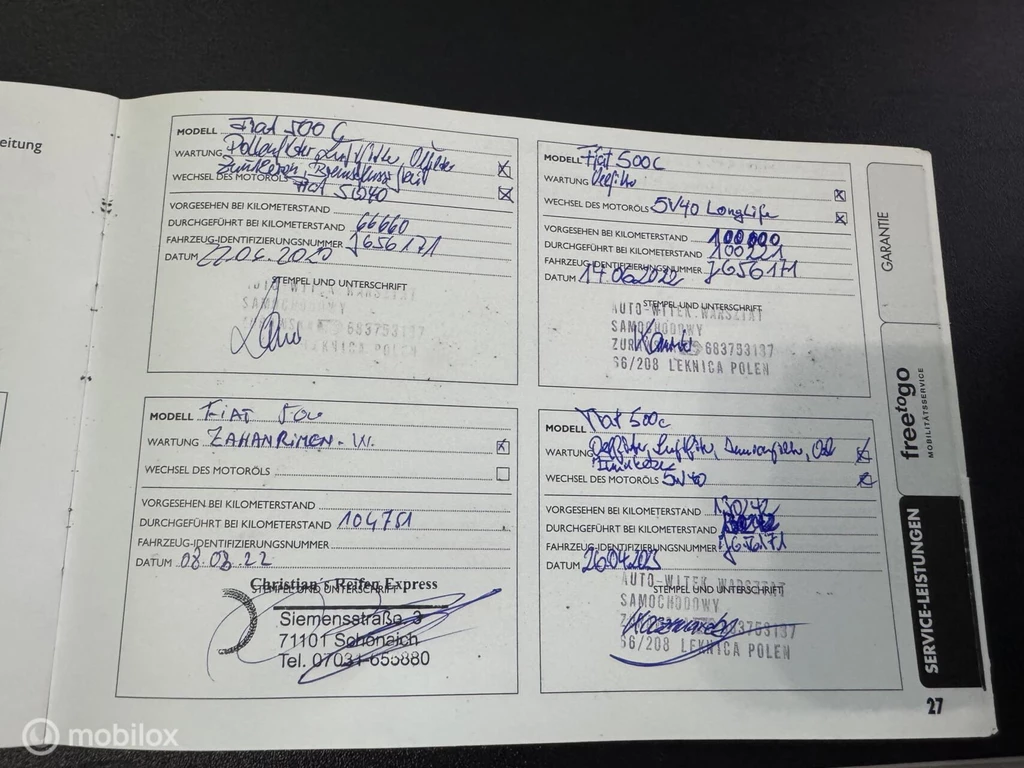 eitung
MODELL Fiat 500 C
WARTUNG Pollenfilter Luftfilter, Ölfilter
Zündkerzen, Bremsflüssigkeit
WECHSEL DES MOTORÖLS 5W40
VORGESEHEN BEI KILOMETERSTAND
DURCHGEFÜHRT BEI KILOMETERSTAND 66660
FAHRZEUG-IDENTIFIZIERUNGSNUMMER J656171
DATUM
STEMPEL UND UNTERSCHRIFT
683753137
LEKNICA POLEN
MODELL Fiat 500c
WARTUNG
WECHSEL DES MOTORÖLS 5V40 Longlife
VORGESEHEN BEI KILOMETERSTAND 100000
DURCHGEFÜHRT BEI KILOMETERSTAND 100221
FAHRZEUG-IDENTIFIZIERUNGSNUMMER J656171
DATUM 17.06.2022
STEMPEL UND UNTERSCHRIFT
AUTO-WITEK WARSZTAT
SAMOCHODOWY
683753137
66/208 LEKNICA POLEN
MODELL FIAT 500
WARTUNG ZAHANRIMEN-W.
WECHSEL DES MOTORÖLS
VORGESEHEN BEI KILOMETERSTAND
DURCHGEFÜHRT BEI KILOMETERSTAND 104751
FAHRZEUG-IDENTIFIZIERUNGSNUMMER
DATUM 08.08.22
Christian's Reifen Express
STEMPEL UND UNTERSCHRIFT
Siemensstraße 3
71101 Schönaich
Tel. 07031-655880
MODELL Fiat 500c
WARTUNG Ölfilter, Luftfilter,
WECHSEL DES MOTORÖLS 5W40
VORGESEHEN BEI KILOMETERSTAND
DURCHGEFÜHRT BEI KILOMETERSTAND
FAHRZEUG-IDENTIFIZIERUNGSNUMMER J656171
DATUM 26.04.2023
STEMPEL UND UNTERSCHRIFT
AUTO-WITEK WARSZTAT
SAMOCHODOWY
66/208 LEKNICA POLEN
GARANTIE
freetogo
MOBILITÄTSSERVICE
SERVICE-LEISTUNGEN
27
mobilox